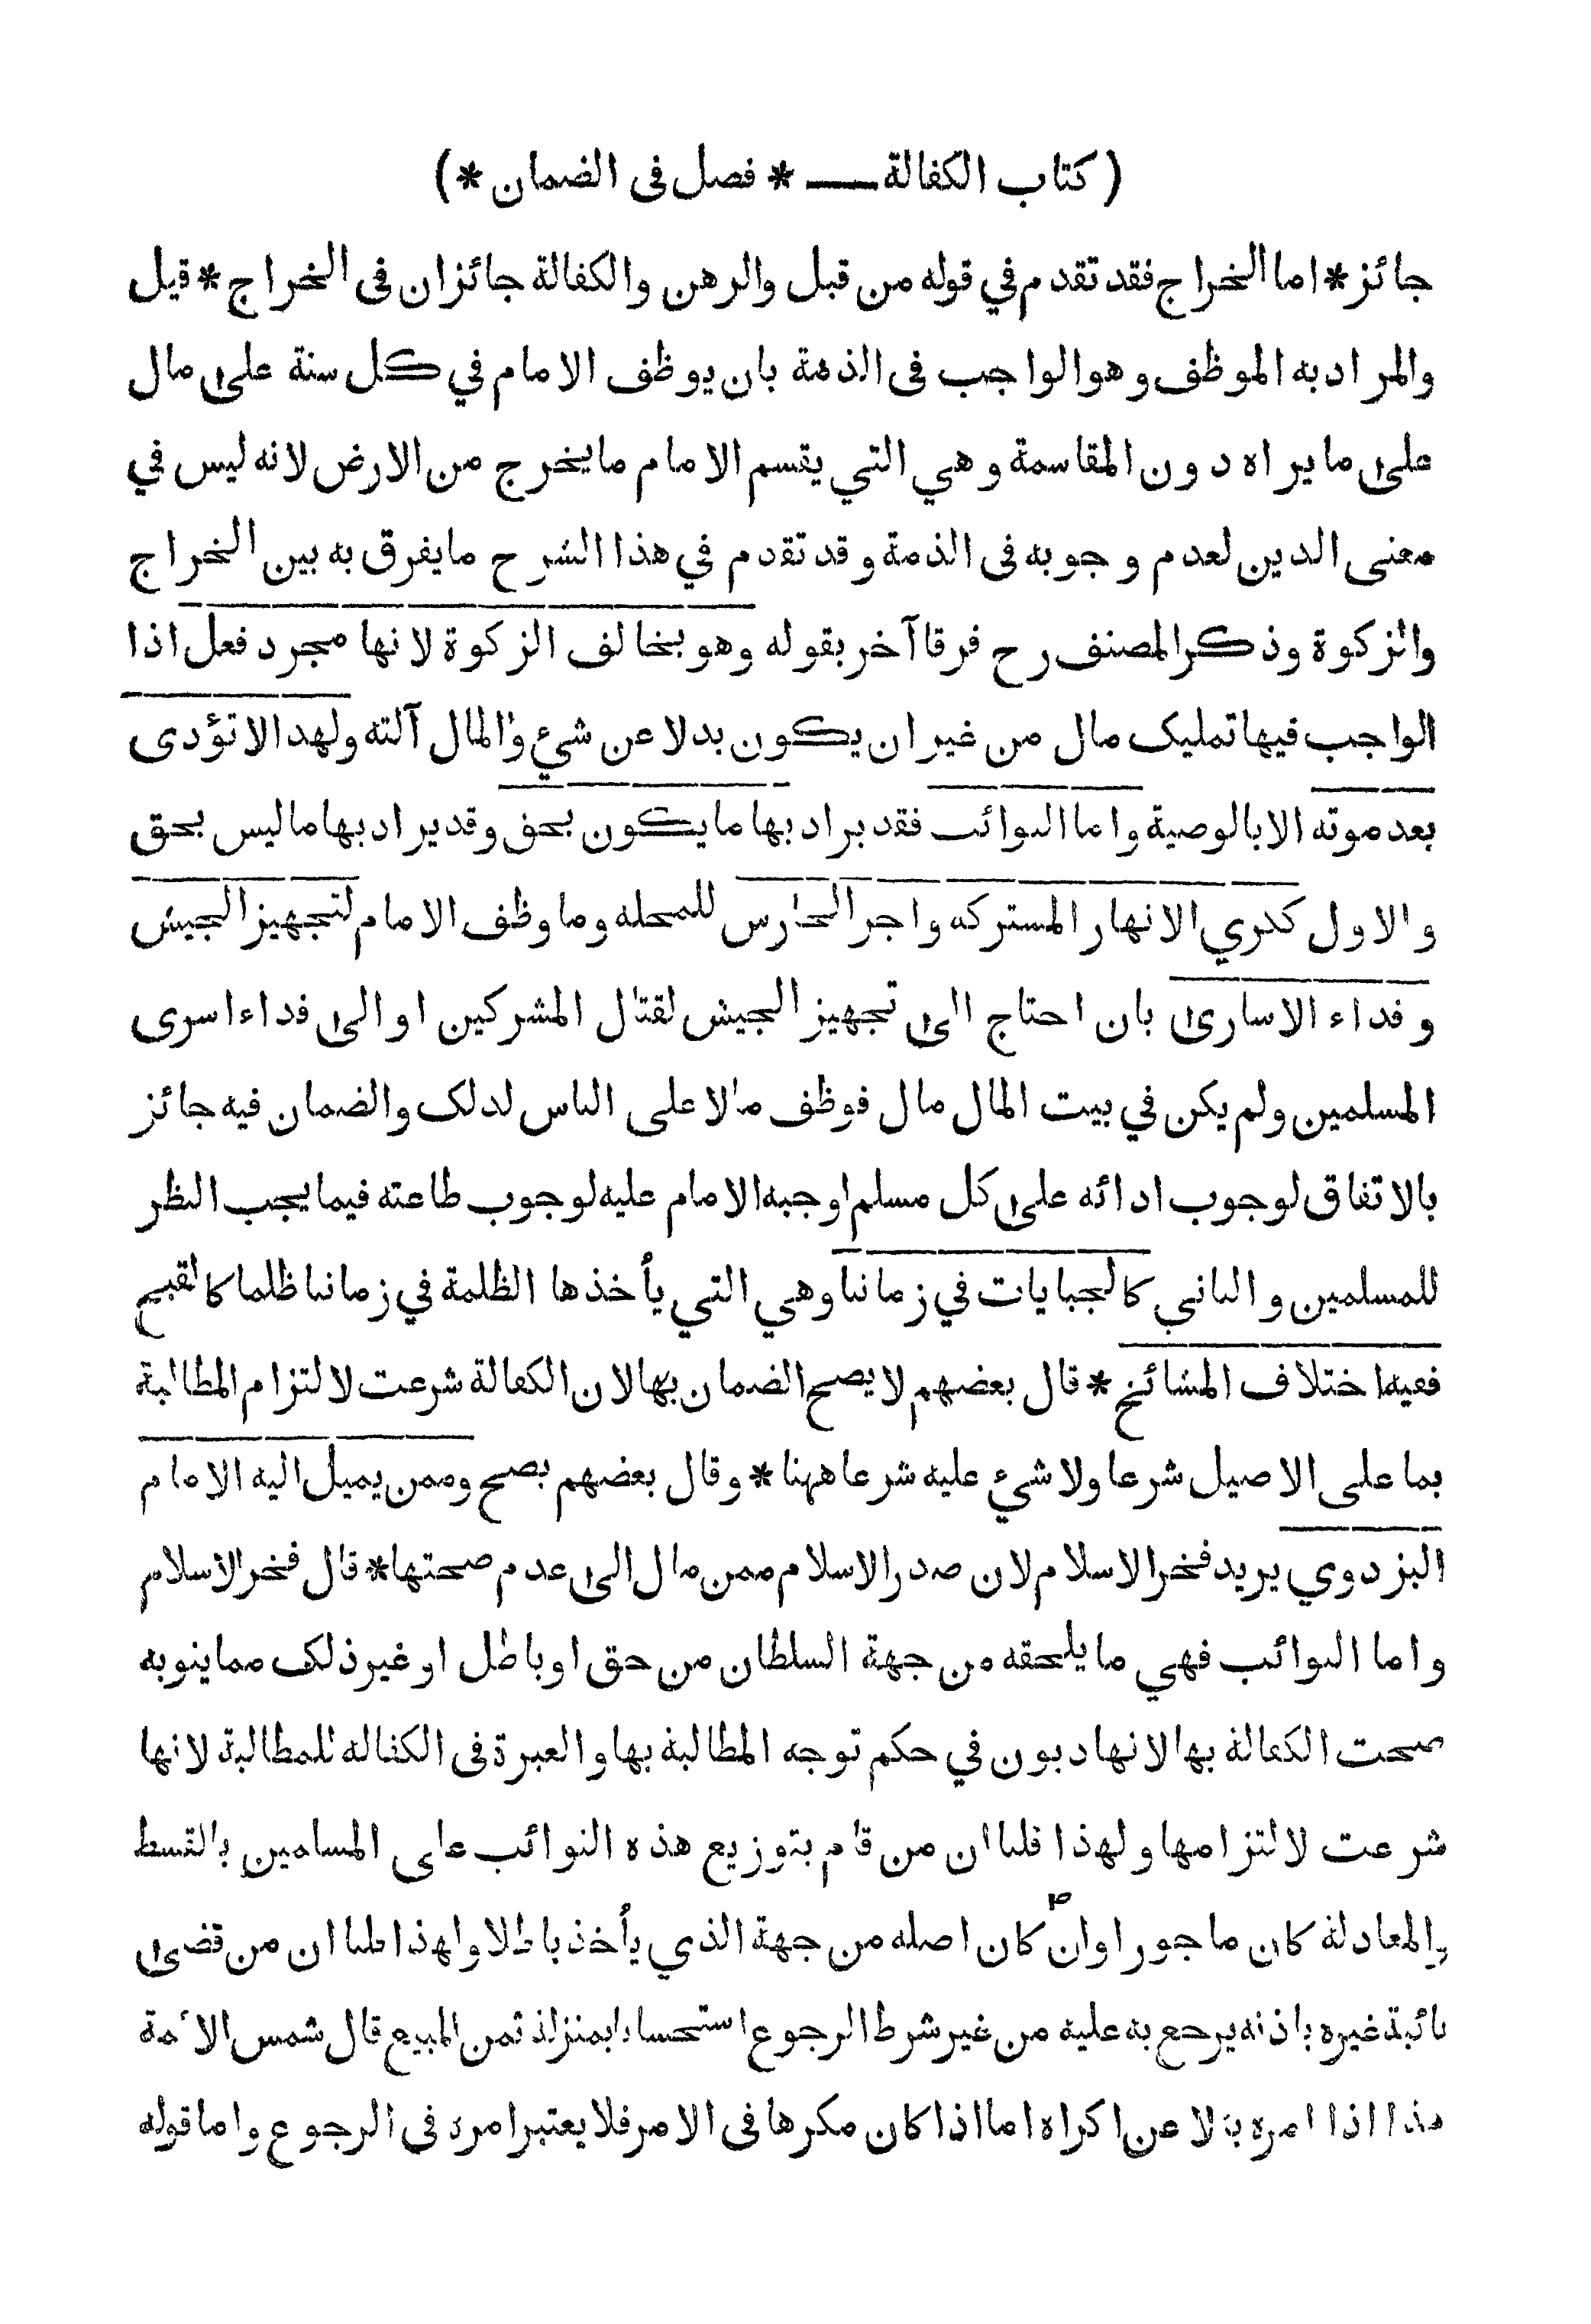 ( كتاب الكفالة — * فصل فى الضمان * )
جائز * اما الخراج فقد تقدم في قوله من قبل والرهن والكفالة جائزان فى الخراج * قيل
والمراد به الموظف وهو الواجب فى الذمة بان يوظف الامام في كل سنة على مال
على ما يراه دون المقاسمة وهي التي يقسم الامام ما يخرج من الارض لانه ليس في
معنى الدين لعدم وجوبه فى الذمة وقد تقدم في هذا الشرح ما يفرق به بين الخراج
والزكوة وذكر المصنف رح فرقا آخر بقوله وهو يخالف الزكوة لانها مجرد فعل اذا
الواجب فيها تمليك مال من غير ان يكون بدلا عن شيء والمال آلته ولهذا لا تؤدى
بعد موته الا بالوصية واما النوائب فقد يراد بها ما يكون بحق وقد يراد بها ما ليس بحق
والاول ككري الانهار المشتركه واجر الحارس للمحله وما وظف الامام لتجهيز الجيش
وفداء الاسارى بان احتاج الى تجهيز الجيش لقتال المشركين او الى فداء اسرى
المسلمين ولم يكن في بيت المال مال فوظف مالا على الناس لذلك والضمان فيه جائز
بالاتفاق لوجوب ادائه على كل مسلم اوجبه الامام عليه لوجوب طاعته فيما يجب النظر
للمسلمين والثاني كالجبايات في زماننا وهي التي يأخذها الظلمة في زماننا ظلما كالقبيح
ففيه اختلاف المشائخ * قال بعضهم لا يصح الضمان بها لان الكفالة شرعت لالتزام المطالبة
بما على الاصيل شرعا ولا شيء عليه شرعا ههنا * وقال بعضهم يصح وممن يميل اليه الامام
البزدوي يريد فخر الاسلام لان صدر الاسلام ممن مال الى عدم صحتها * قال فخر الاسلام
واما النوائب فهي ما يلحقه من جهة السلطان من حق او باطل او غير ذلك مما ينوبه
صحت الكفالة بها لانها ديون في حكم توجه المطالبة بها والعبرة فى الكفاله للمطالبة لانها
شرعت لالتزامها ولهذا قلنا ان من قام بتوزيع هذه النوائب على المسلمين بالقسط
والمعادلة كان ماجورا وان كان اصله من جهة الذي يأخذ باطلا ولهذا قلنا ان من قضى
نائبة غيره باذنه يرجع به عليه من غير شرط الرجوع استحسانا بمنزلة ثمن المبيع قال شمس الائمة
هذا اذا امره به لا عن اكراه اما اذا كان مكرها فى الامر فلا يعتبر امره فى الرجوع واما قوله